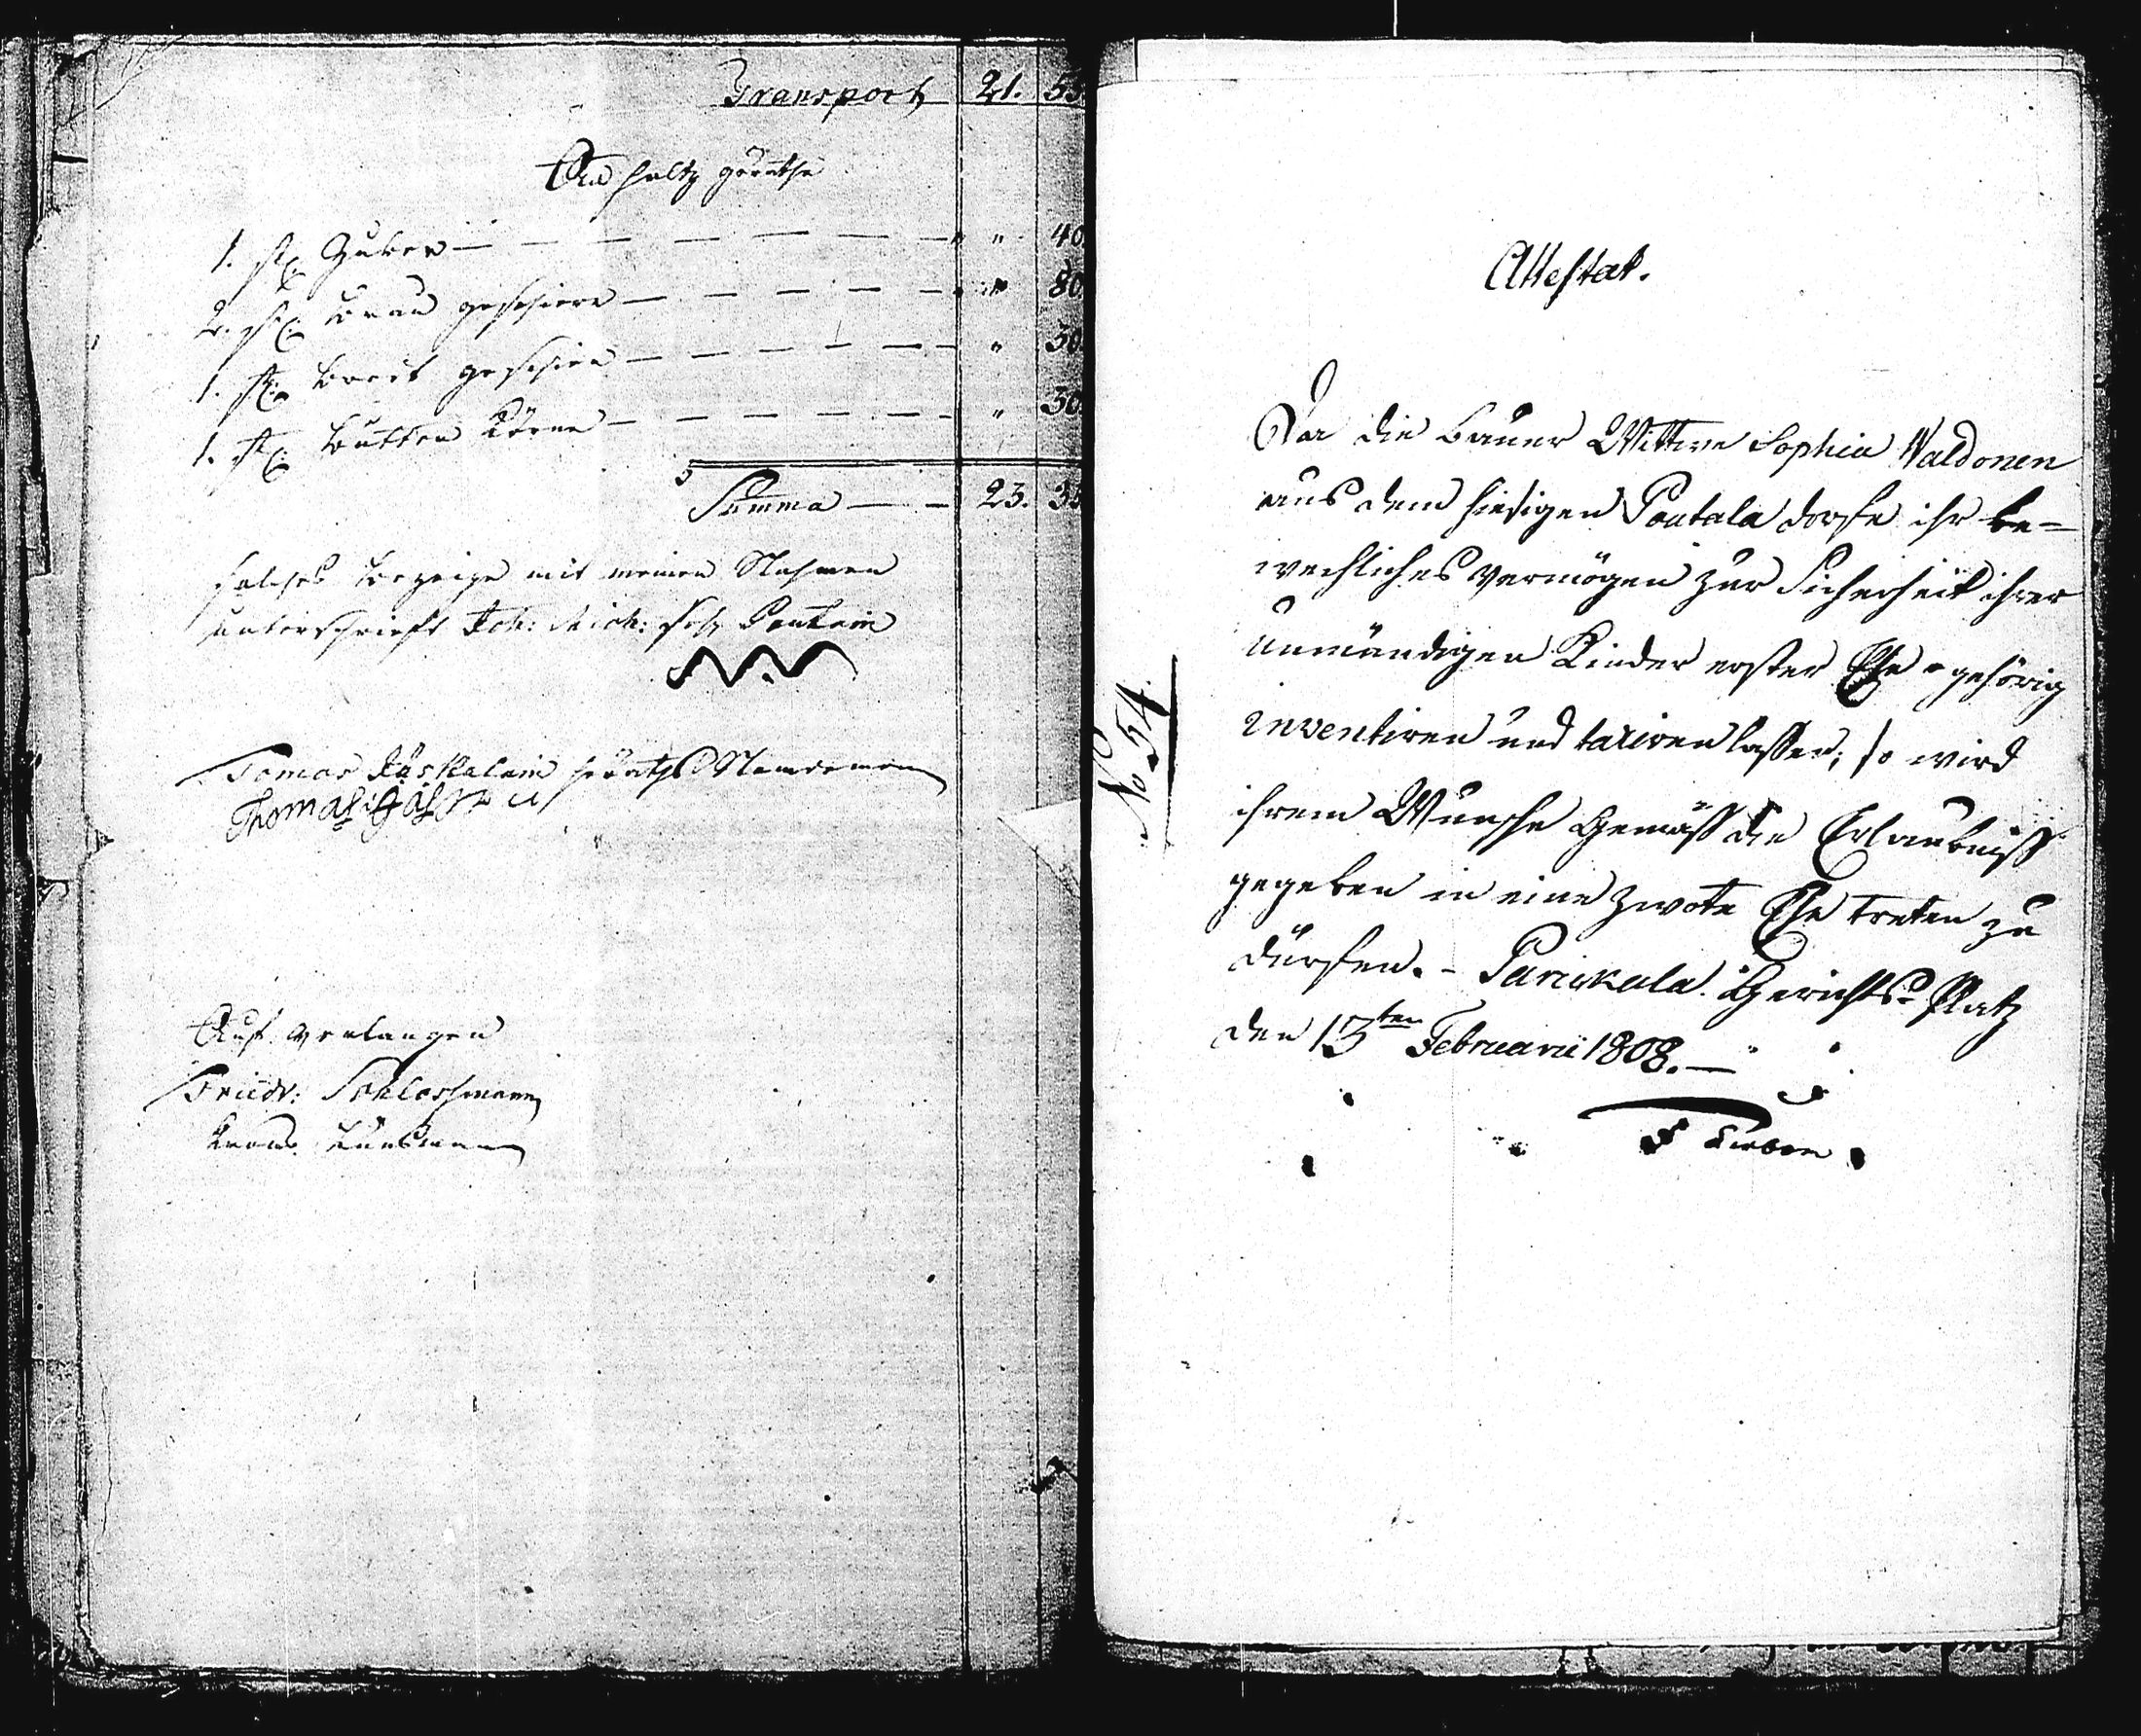 Transport 21. 53
An holtz geräthe
1. st: Zuber — — — " " 40
2. st: brau geschiere — — — " " 80
1. st: brot geschier — — — " 30
1. st: butter Kërne — — — " 30
Summa — — 23. 33
solches bezeige mit meinen Nahmen
unterschrieft Joh: Mich: Sohn Pentain
Tomas Räskelain Nemdemann
Thomas
Auf verlangen
Friedr: Schlossmann
Krons Länsmann
No 54.
Attestat.
Da die bauer Wittwe Sophia Waldonen
aus dem hiesigen Poutala dorfe ihr be-
wechliches vermögen zur Sicherheit ihrer
unmündigen Kinder erster Ehe gehörig
inventiren und taxiren lassen; so wird
ihrem Wunsche Gemäss die Erlaubniss
gegeben in eine zwote Ehe treten zu
dürfen. - Parikala Gerichts-Platz
den 13ten Februarii 1808. —